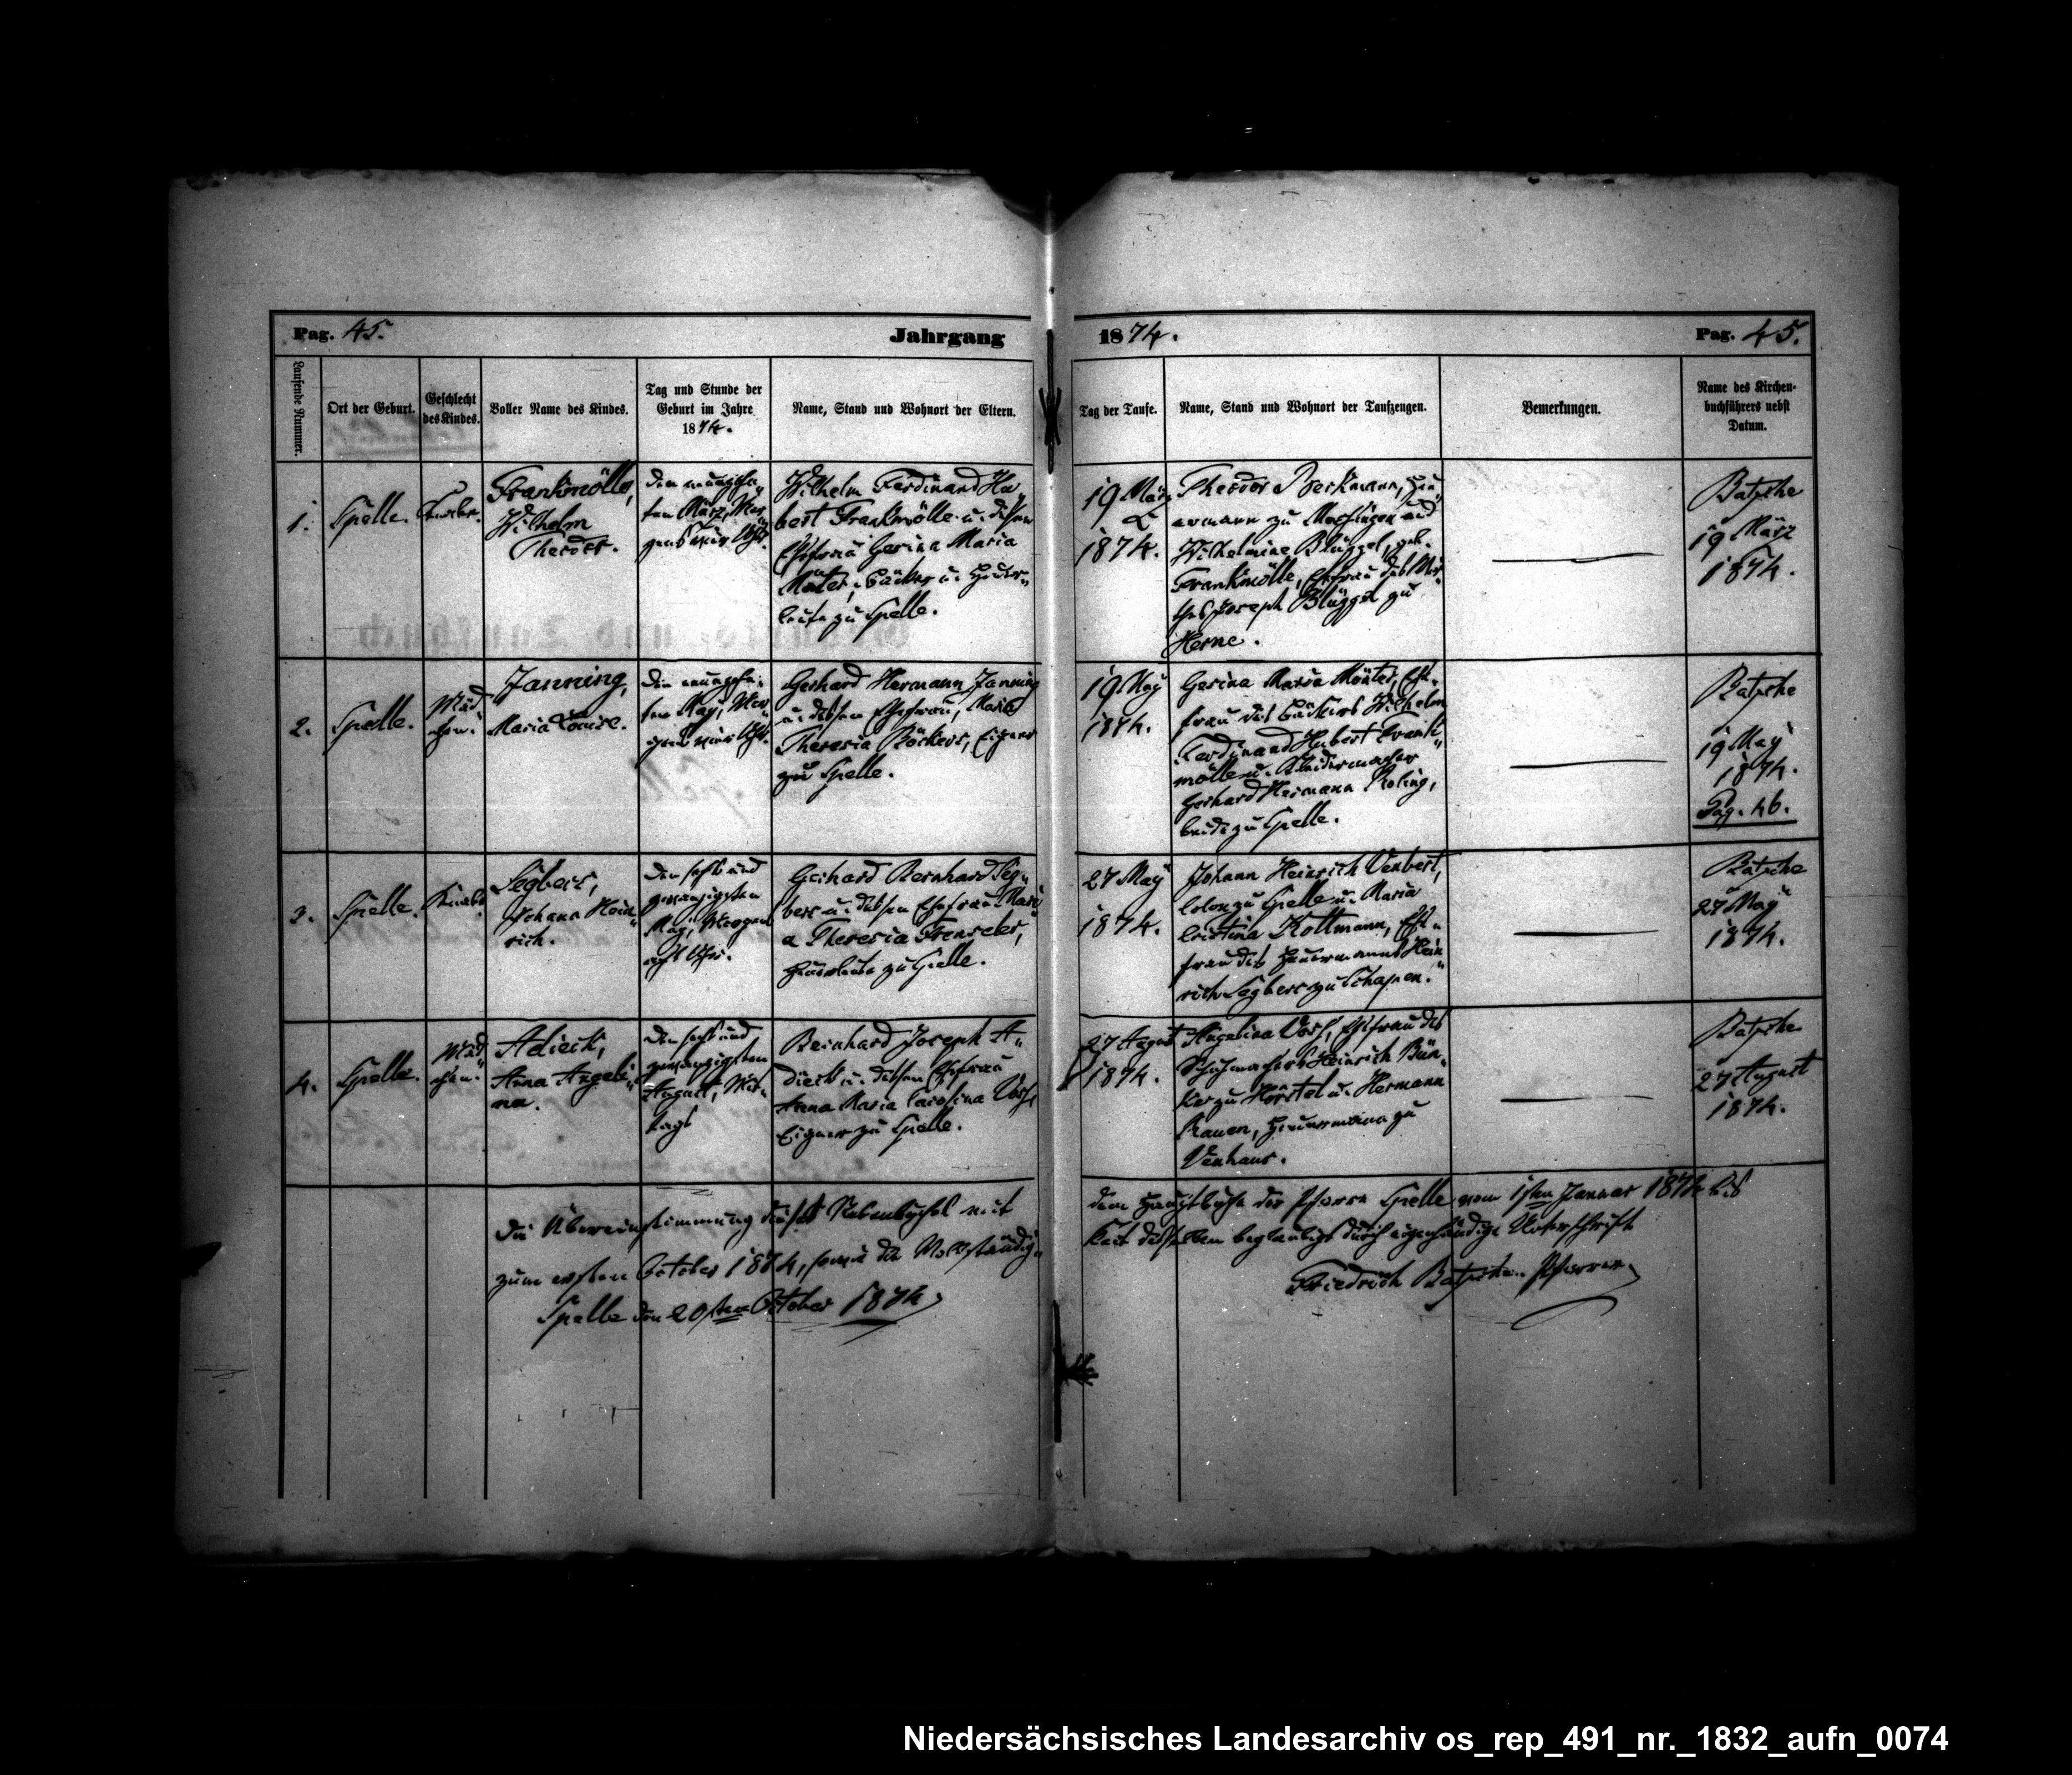 Pag. 45.
Jahrgang
1874.
Pag. 45.
Laufende Nummer.
Ort der Geburt.
Geschlecht
des Kindes.
Voller Name des Kindes.
Tag und Stunde der
Geburt im Jahre
1874.
Name, Stand und Wohnort der Eltern.
Tag der Taufe.
Name, Stand und Wohnort der Taufzeugen.
Bemerkungen.
Name des Kirchen-
buchführers nebst
Datum.
1.
Spelle.
Knabe.
Frankmölle,
Wilhelm
Theodor.
Den neunzehn
ten März, Mor
gens Uhr.
Wilhelm Ferdinand Hu
bert Frankmölle u. dessen
Ehefrau Gesina Maria
Mönter, Bäcker u. Heuer-
leute zu Spelle.
19 März
1874.
Theodor Beckmann, Heu
ermann zu und
Wilhelmine Blüggel, geb.
Frankmölle, Ehefrau des
Joseph Blüggel zu
Herne.
Batsche
19 März
1874.
2.
Spelle.
Mäd
chen.
Janning,
Maria Louise.
Den neunzehn-
ten May, Mor
gens neun Uhr.
Gerhard Hermann Janning
u. dessen Ehefrau, Maria
Theresia Böckers, Eigner
zu Spelle.
19 May
1874.
Gesina Maria Mönter, Ehe-
frau des Bäckers Wilhelm
Ferdinand Hubert Frank
mölle u. Kleidermacher
Gerhard Hermann Roling,
beide zu Spelle.
Batsche
19 May
1874.
Pag. 46.
3.
Spelle.
Knabe.
Segbers,
Johann Hein
rich.
Den sechs und
zwanzigsten
May, Morgens
acht Uhr.
Gerhard Bernhard Seg-
bers u. dessen Ehefrau Mari
a Theresia Frenseler,
Heuerleute zu Spelle.
27 May
1874.
Johann Heinrich Venbert,
Colon zu Spelle u. Maria
Cristina Kottmann, Ehe-
frau des Heuermanns Hein
rich Segbers zu Schapen.
Batsche
27 May
1874.
4.
Spelle.
Mäd
chen.
Adieck,
Anna Angeli
na.
Den sechs und
zwanzigsten
August, Mit-
tags
Bernhard Joseph A-
dieck u. dessen Ehefrau
Anna Maria Carolina Voß,
Eigner zu Spelle.
27 August
1874.
Angelina Voß, Ehefrau des
Schuhmachers Heinrich Bün-
ker zu Hörstel u. Hermann
Rauen, Heuermann zu
Venhaus.
Batsche
27 August
1874.
Die Übereinstimmung dieses Nebenbuches mit
dem Hauptbuche der Pfarre Spelle vom 1sten Januar 1874 bis
zum ersten October 1874, sowie die Vollständig-
keit desselben beglaubigt durch eigenhändige Unterschrift
Spelle den 20sten October 1874
Friedrich Batsche. Pfarrer.
Niedersächsisches Landesarchiv os_rep_491_nr._1832_aufn_0074